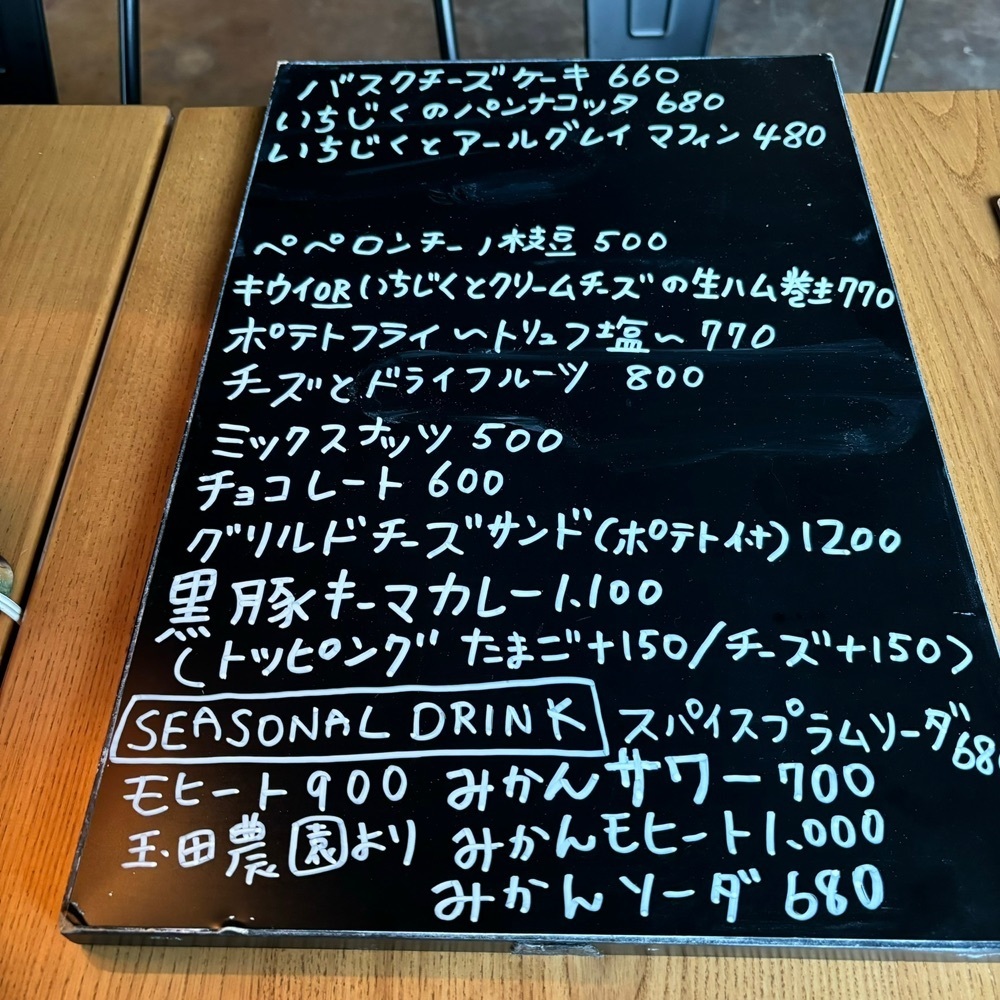 バスクチーズケーキ 660
いちじくのパンナコッタ 680
いちじくとアールグレイ マフィン 480
ペペロンチーノ枝豆 500
キウイORいちじくとクリームチーズの生ハム巻き770
ポテトフライ 〜トリュフ塩〜 770
チーズとドライフルーツ 800
ミックスナッツ 500
チョコレート 600
グリルドチーズサンド(ポテト付) 1200
黒豚キーマカレー 1.100
(トッピング たまご+150/チーズ+150)
SEASONAL DRINK スパイスプラムソーダ 680
モヒート 900 みかんサワー 700
玉田農園より みかんモヒート 1.000
みかんソーダ 680